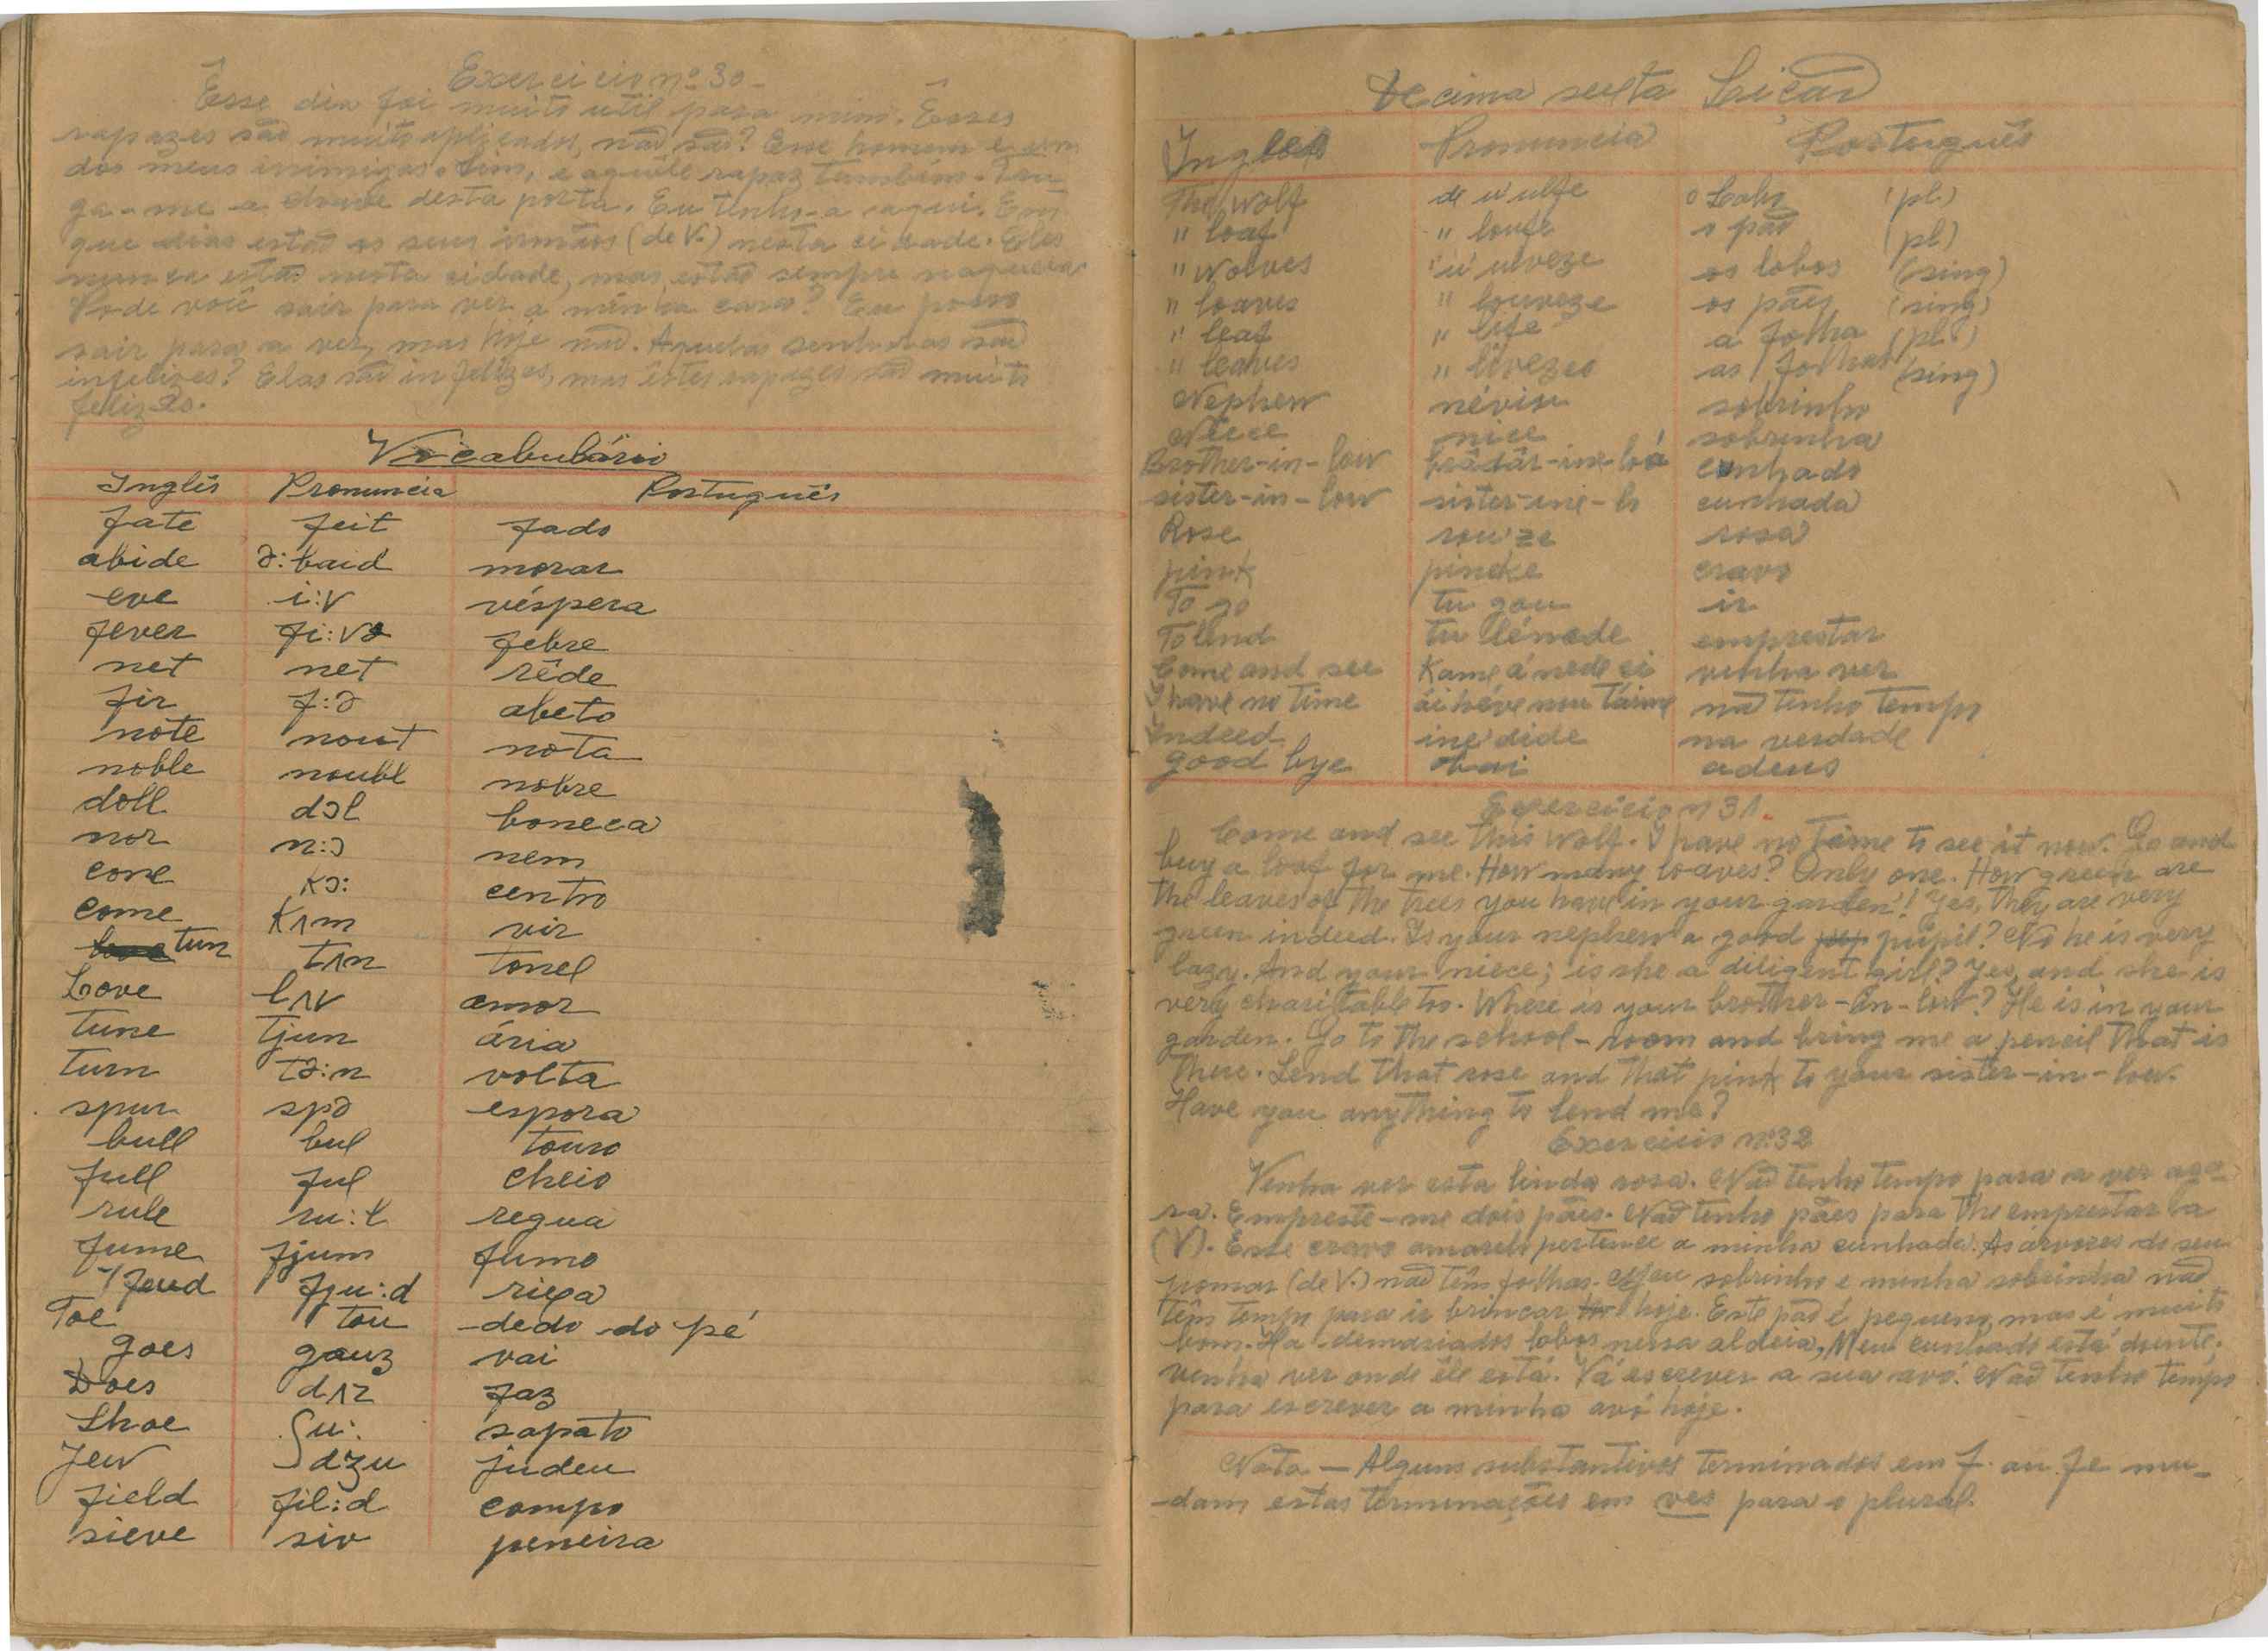 Exercicio nº 30
Êsse dia foi muito util para mim. Êsses
rapazes são muito aplicados, não são? Esse homem é um
dos meus inimigos. Sim, e aquêle rapaz tambêm. Tra
ga-me a chave desta porta. Eu tenho-a aqui. Em
que dias estão os seus irmãos (de V.) nesta cidade. Eles
nunca estão nesta cidade, mas estão sempre naquela
Pode você sair para ver a minha casa? Eu posso
sair para a ver, mas hoje não. Aquelas senhoras são
infelizes? Elas são infelizes, mas êstes rapazes são muito
felizes.
Vocabulário
Inglês Pronuncia Português
fate feit fado
abide ə:baid morar
eve i:v véspera
fever fi:və febre
net net rêde
fir f:ə abeto
note nout nota
noble noubl nobre
doll dɔl boneca
nor n:ɔ nem
cone kɔ: centro
come kʌm vir
tun tʌn tonel
Love lʌv amor
tune tjun ária
turn tə:n volta
spur spə espora
bull bul touro
full ful cheio
rule ru:l regua
fume fjum fumo
feud fju:d rixa
Toe tou dedo do pé
goes gouz vai
Does dʌz faz
Shoe ʃu: sapato
Jew dzu judeu
field fil:d campo
sieve siv peneira
Decima sexta Lição
Ingles Pronuncia Português
The wolf de u'ulfe o Lobo (pl)
" loaf " loufe o pão (pl)
" wolves " u'ulveze os lobos (sing)
" loaves " louveze os pães (sing)
" leaf " life a folha (pl.)
" leaves " livezes as folhas (sing)
Nephew néviu sobrinho
Niece nice sobrinha
Brother-in-low brâdâr-ine-loá cunhado
sister-in-low sister-ine-lo cunhada
Rose rouze rosa
pink pineke cravo
To go tu gou ir
To lend tu lénede emprestar
Come and see Kame ánede ci venha ver
I have no time ái héve nou táime não tenho tempo
Indeed ine'dide na verdade
good bye bai adeus
Exercício n 31.
Come and see this wolf. I have no time to see it now. Go and
buy a loaf for me. How many loaves? Only one. How green are
the leaves of the trees you have in your garden! Yes, they are very
green indeed. Is your nephew a good pupil? No he is very
lazy. And your niece; is she a diligent girl? Yes, and she is
very charitable too. Where is your brother-in-low? He is in your
garden. Go to the school-room and bring me a pencil that is
there. Lend that rose and that pink to your sister-in-low.
Have you anything to lend me?
Exercicio nº 32
Venha ver esta linda rosa. Não tenho tempo para a ver ago-
ra. Empreste-me dois pães. Não tenho pães para lhe emprestar a
(V). Esse cravo amarelo pertence a minha cunhada. As árvores do seu
pomar (de V.) não têm folhas. Meu sobrinho e minha sobrinha não
têm tempo para ir brincar hoje. Este pão é pequeno, mas é muito
bom. Ha demasiados lobos nessa aldeia, Meu cunhado está doente;
venha ver onde êle está. Vá escrever a sua avó. Não tenho tempo
para escrever a minha avó hoje.
Nota — Alguns substantivos terminados em f. ou fe mu-
-dam estas terminações em ves para o plural.